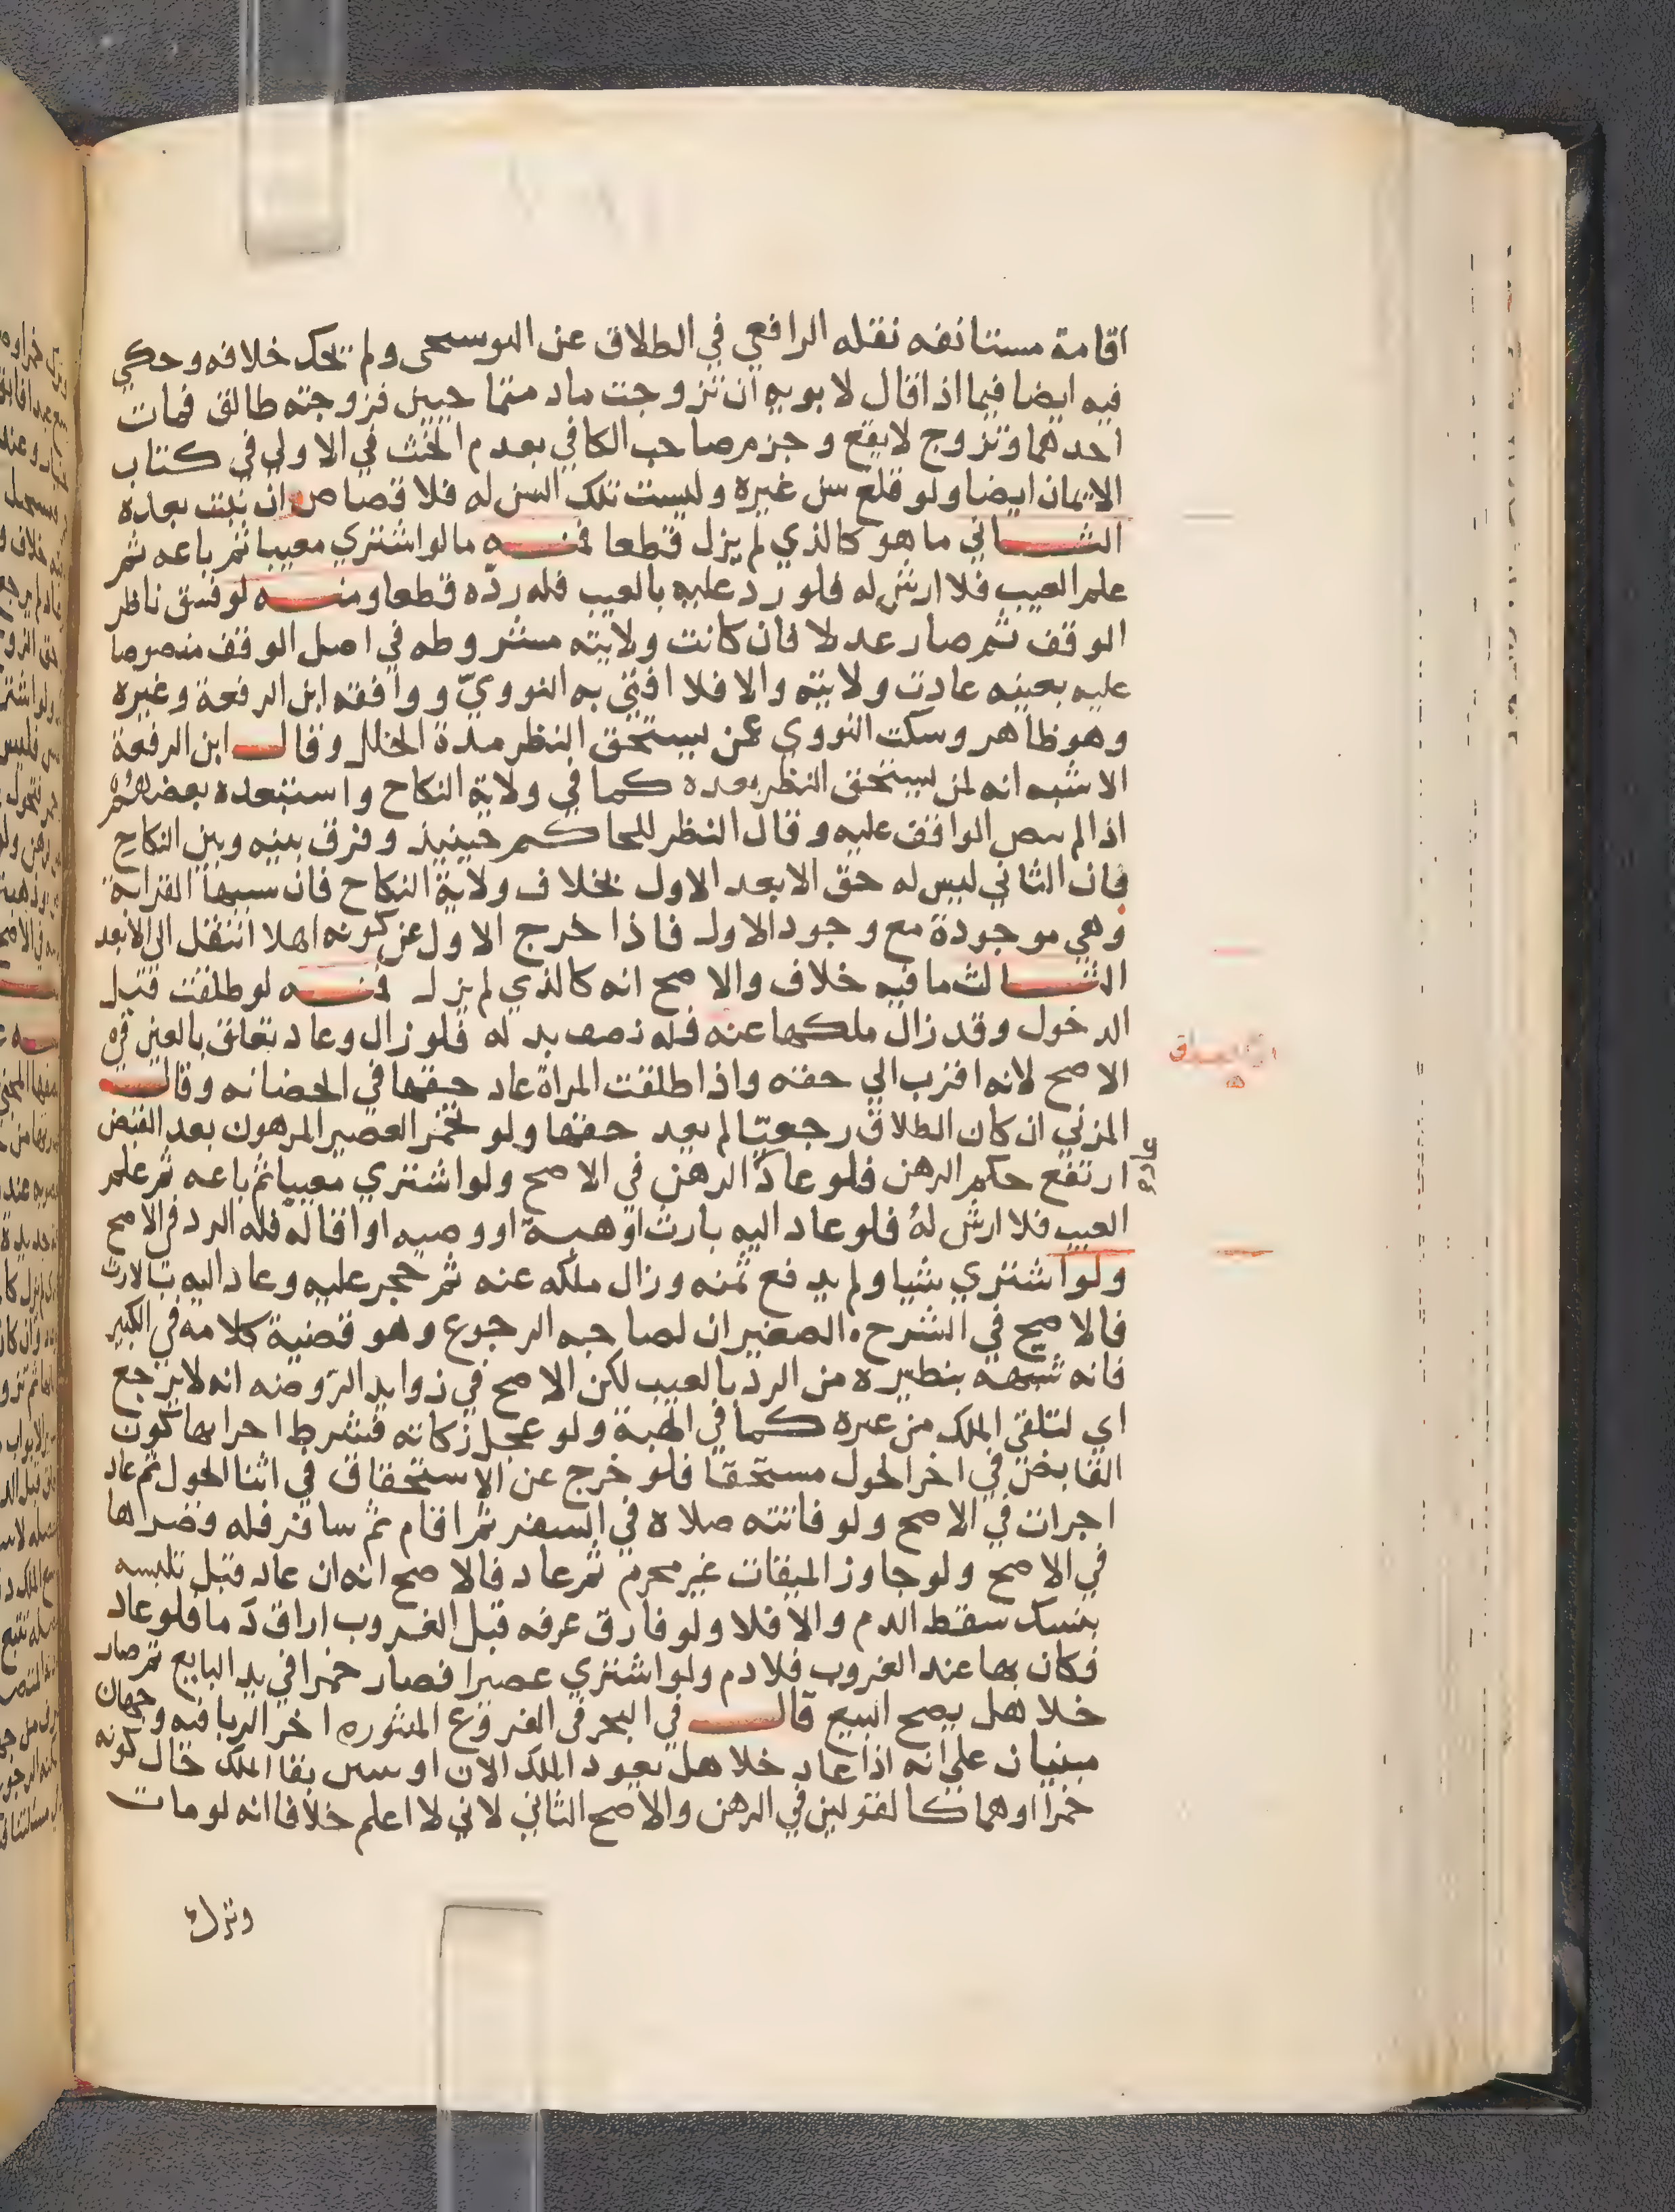 اقامة مستانفه نقله الرافعي في الطلاق عن البوسحى ولم يحك خلافه وحكي
فيه ايضا فيما اذا قال لابويه ان تزوجت مادمتما حيين فزوجته طالق فمات
احدهما وتزوج لا يقع وجزم صاحب الكافي بعدم الحنث في الاولي في كتاب
الايمان ايضا ولو قلع سن غيره وليست تلك السن له فلا قصاص ان نبتت بعده
الثاني ما هو كالذي لم يزل قطعا فمنه ما لو اشتري معيبا ثم باعه ثم
علم العيب فلا ارش له فلو رد عليه بالعيب فله ردّه قطعا ومنه لو فسق ناظر
الوقف ثم صار عدلا فان كانت ولايته مشروطه في اصل الوقف منصوصا
عليه بعينه عادت ولايته والا فلا افتي به النوويّ ووافقه ابن الرفعة وغيره
وهو ظاهر وسكت النووي عمن يستحق النظر مدة الخلل وقال ابن الرفعة
الاشبه انه لمن يستحق النظر بعده كما في ولاية النكاح واستبعده بعضهم
اذا لم ىىص الواقف عليه وقال النظر للحاكم حينيذ وفرق بينه وبين النكاح
فان الثاني ليس له حق الا بعد الاول بخلاف ولاية النكاح فان سببها القرابة
وهي موجودة مع وجود الاول فاذا خرج الاول عن كونه اهلا انتقل الى الابعد
الثالث ما فيه خلاف والاصح انه كالذي لم يزل فمنه لو طلقت قبل
الدخول وقد زال ملكها عنه فله نصف بدله فلو زال وعاد تعلق بالعين في
الاصح لانه اقرب الي حقه واذا طلقت المراة عاد حقها في الحضانه وقال
المزني ان كان الطلاق رجعيّا لم يعد حقها ولو تخمر العصير المرهون بعد القبض
ارتفع حكم الرهن فلو عاد عاد الرهن في الاصح ولو اشتري معيبا ثم باعه ثم علم
العيب فلا ارش لهُ فلو عاد اليه بارث او هبة او وصيه او اقاله فله الرد في الاصح
ولو اشتري شيا ولم يدفع ثمنه وزال ملكه عنه ثم حجر عليه وعاد اليه بالارث
فالاصح في الشرح الصغير ان لصاحبه الرجوع وهو قضية كلامه في الكبير
فانه شبهه بنظيره من الرد بالعيب لكن الاصح في زوايد الرّوضه انه لا يرجع
اي لتلقي الملك من غيره كما في الهبة ولو عجل زكاته فشرط اجرايها كون
القابض في اخر الحول مستحقا فلو خرج عن الاستحقاق في اثنا الحول ثم عاد
اجزات في الاصح ولو فاتته صلاة في السفر ثم اقام ثم سافر فله وقصراها
في الاصح ولو جاوز الميقات غير محرم ثم عاد فالاصح انه ان عاد قبل تلبسه
بنسك سقط الدم والا فلا ولو فارق عرفه قبل الغروب اراق دما فلو عاد
فكان بها عند الغروب فلا دم ولو اشتري عصيرا فصار خمرا في يد البايع ثم صار
خلا هل يصح البيع قال في البحر في الفروع المنثوره اخر الربا فيه وجهان
مبنيان على انه اذا عاد خلا هل يعود الملك الان او ىىىىن بقا الملك حال كونه
خمرا وهما كالقولين في الرهن والاصح الثاني لاني لا اعلم خلافا انه لو مات
وترك